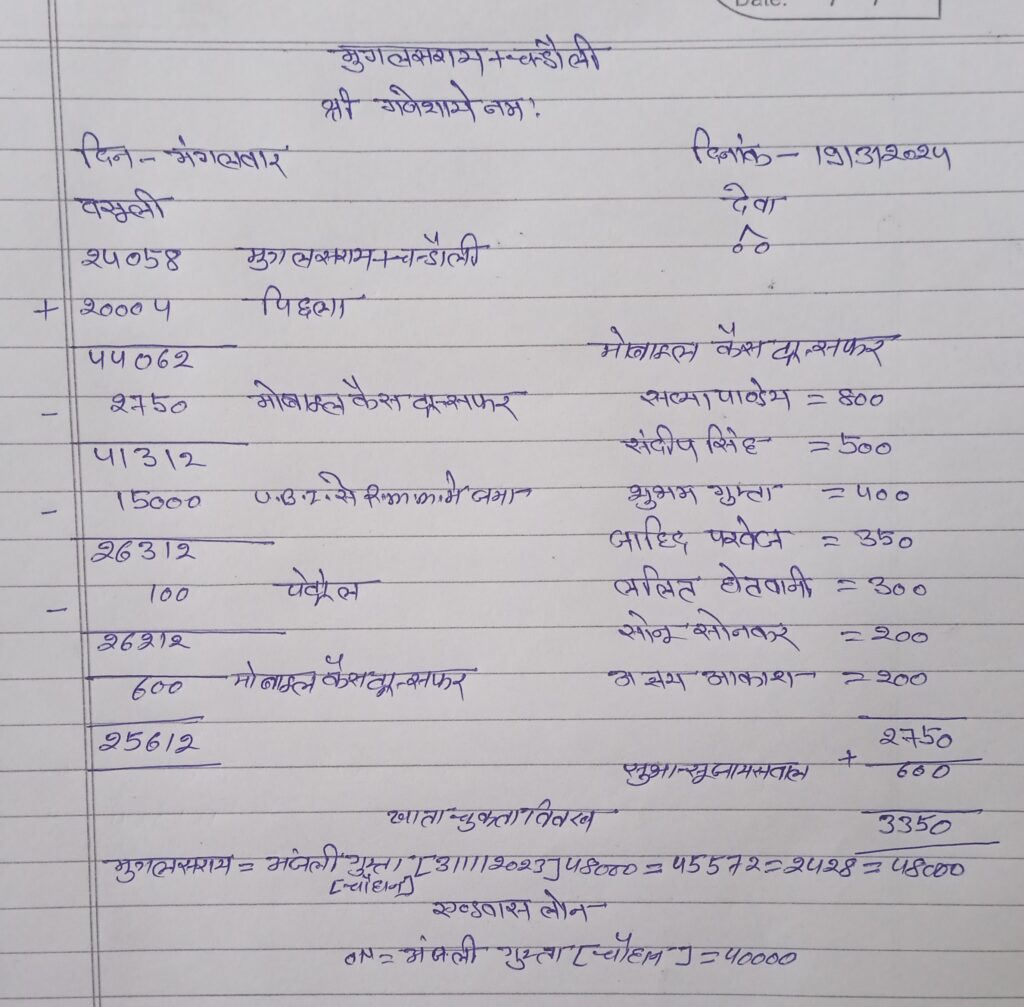 Date: / /
मुगलसराय+चन्डौली
श्री गनेशाये नम:
दिन - मंगलवार दिनांक - 19/3/2024
वसुली देवा
24058 मुगलसराय+चन्डौली
+ 20004 पिछला
44062 मोबाइल कैस ट्रान्सफर
- 2750 मोबाइल कैस ट्रान्सफर सत्या पाण्डेय = 800
41312 संदीप सिंह = 500
- 15000 U.B.I. से जमा शुभम गुप्ता = 400
26312 जाहिद परवेज = 350
- 100 पेट्रोल ललित हेतवानी = 300
26212 सोनू सोनकर = 200
600 मोबाइल कैस ट्रान्सफर आकाश = 200
25612 2750
+ 600
खाता चुकता विवरण 3350
मुगलसराय = अंजली गुप्ता [3/11/2023] 48000 = 45572 = 2428 = 48000
[चौहान]
एडवांस लोन
ON = अंजली गुप्ता [चौहान] = 40000